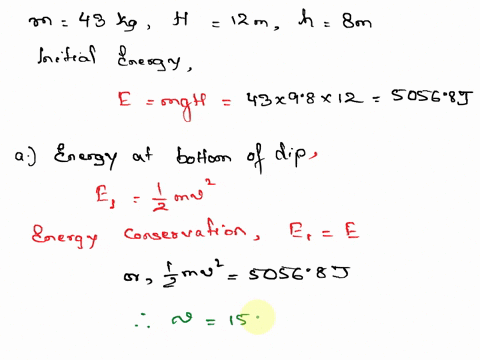 m = 43 kg, H = 12m, h = 8m
Initial Energy,
E = mgH = 43×9.8×12 = 5056.8J
a.) Energy at bottom of dip,
E₁ = 1/2 mv²
Energy Conservation, E₁ = E
or, 1/2 mv² = 5056.8J
∴ v = 15.